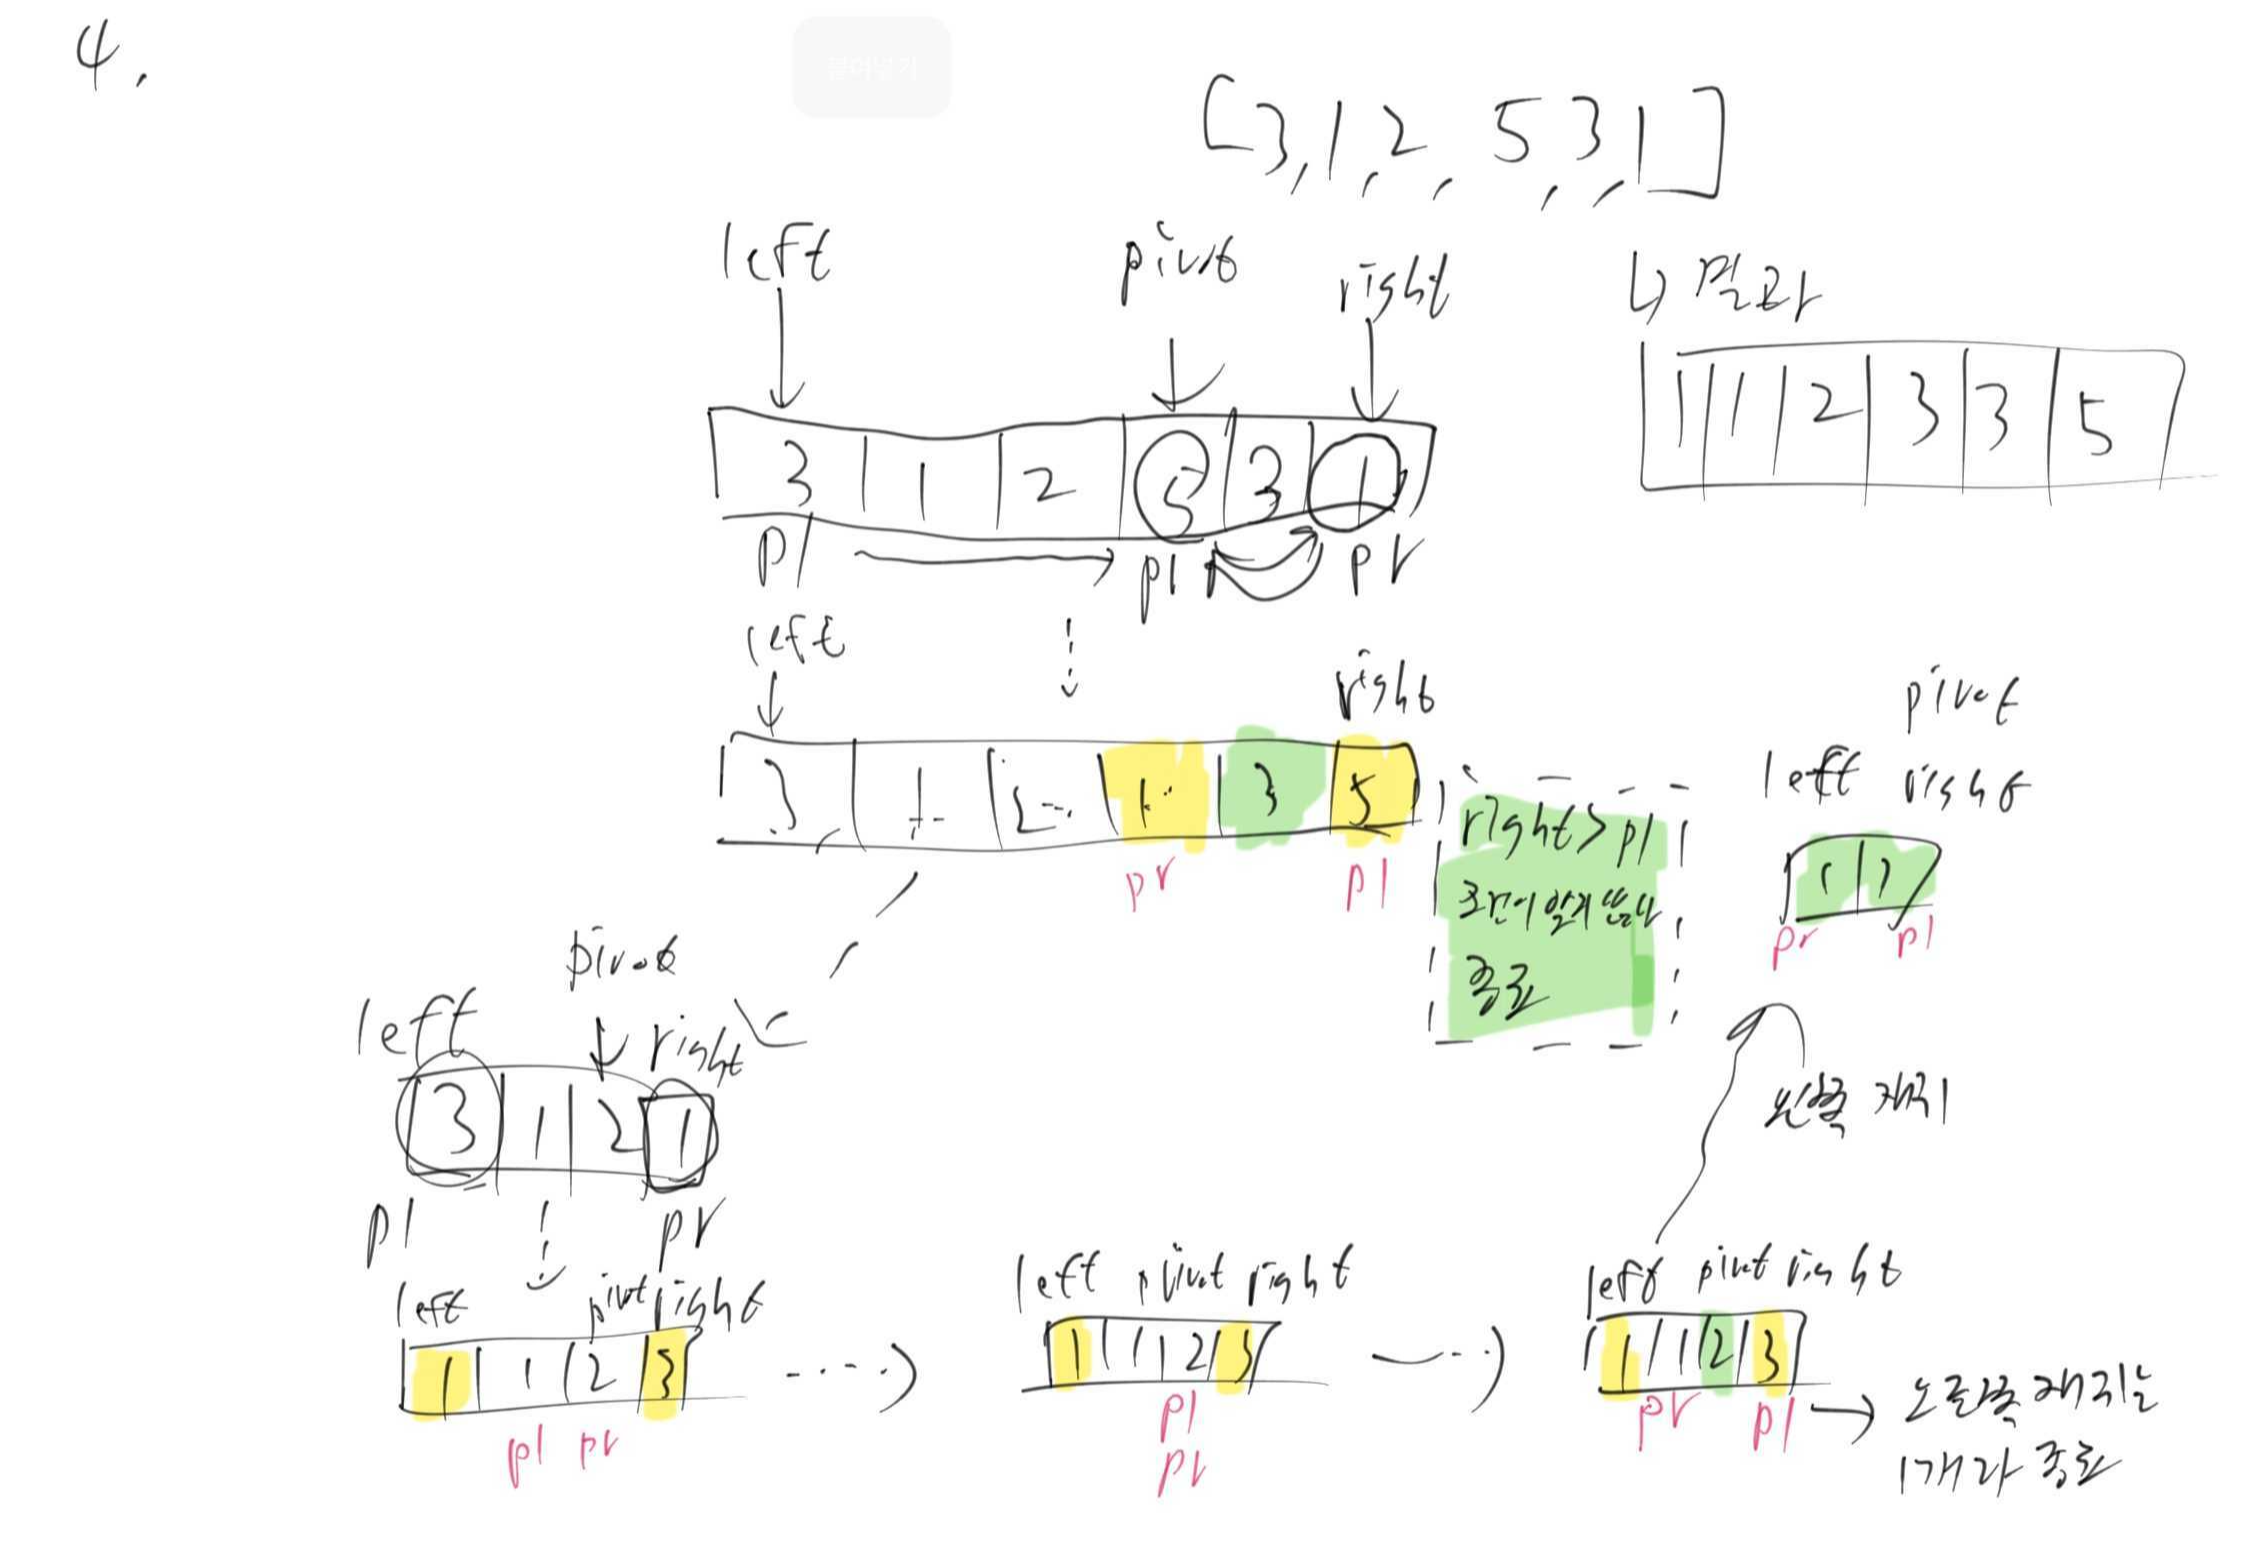 4.
붙여넣기
[3, 1, 2, 5, 3, 1]
left pivot right
↳ 결과
1 1 2 3 3 5
3 1 2 5 3 1
pl → pl pr
left right
3 1 2 1 3 5
pr pl
right > pl
조건이 맞지 않다
종료
pivot
left right
1 1
pr pl
왼쪽 재귀
pivot
left right
3 1 2 1
pl pr
left pivot right
1 1 2 3
pl pr
left pivot right
1 1 2 3
pl
pr
left pivot right
1 1 2 3
pr pl → 오른쪽 재귀는
1개라 종료